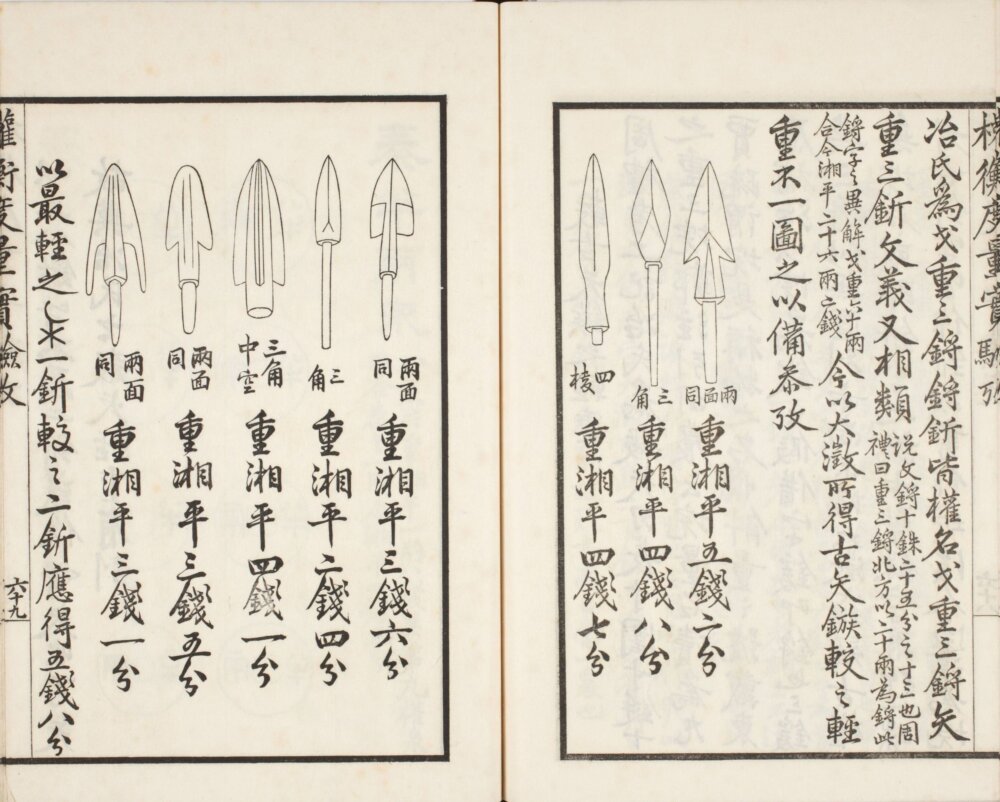 權衡度量實驗攷
冶氏為戈重三鋝鋝釿皆權名戈重三鋝矢
重三釿文義又相類
說文鋝十銖二十五分之十三也周
禮曰重三鋝北方以二十兩為鋝此
鋝字之異解戈重六十兩
合今湘平二十六兩二錢
今以大澂所得古矢鏃較之輕
重不一圖之以備叅攷
兩面同
重湘平五錢二分
三角
重湘平四錢八分
四棱
重湘平四錢七分
兩面
同
重湘平三錢六分
三角
重湘平二錢四分
三角
中空
重湘平四錢一分
兩面
同
重湘平三錢五分
兩面
同
重湘平三錢一分
以最輕之一釿較之二釿應得五錢八分
權衡度量實驗攷
六十九